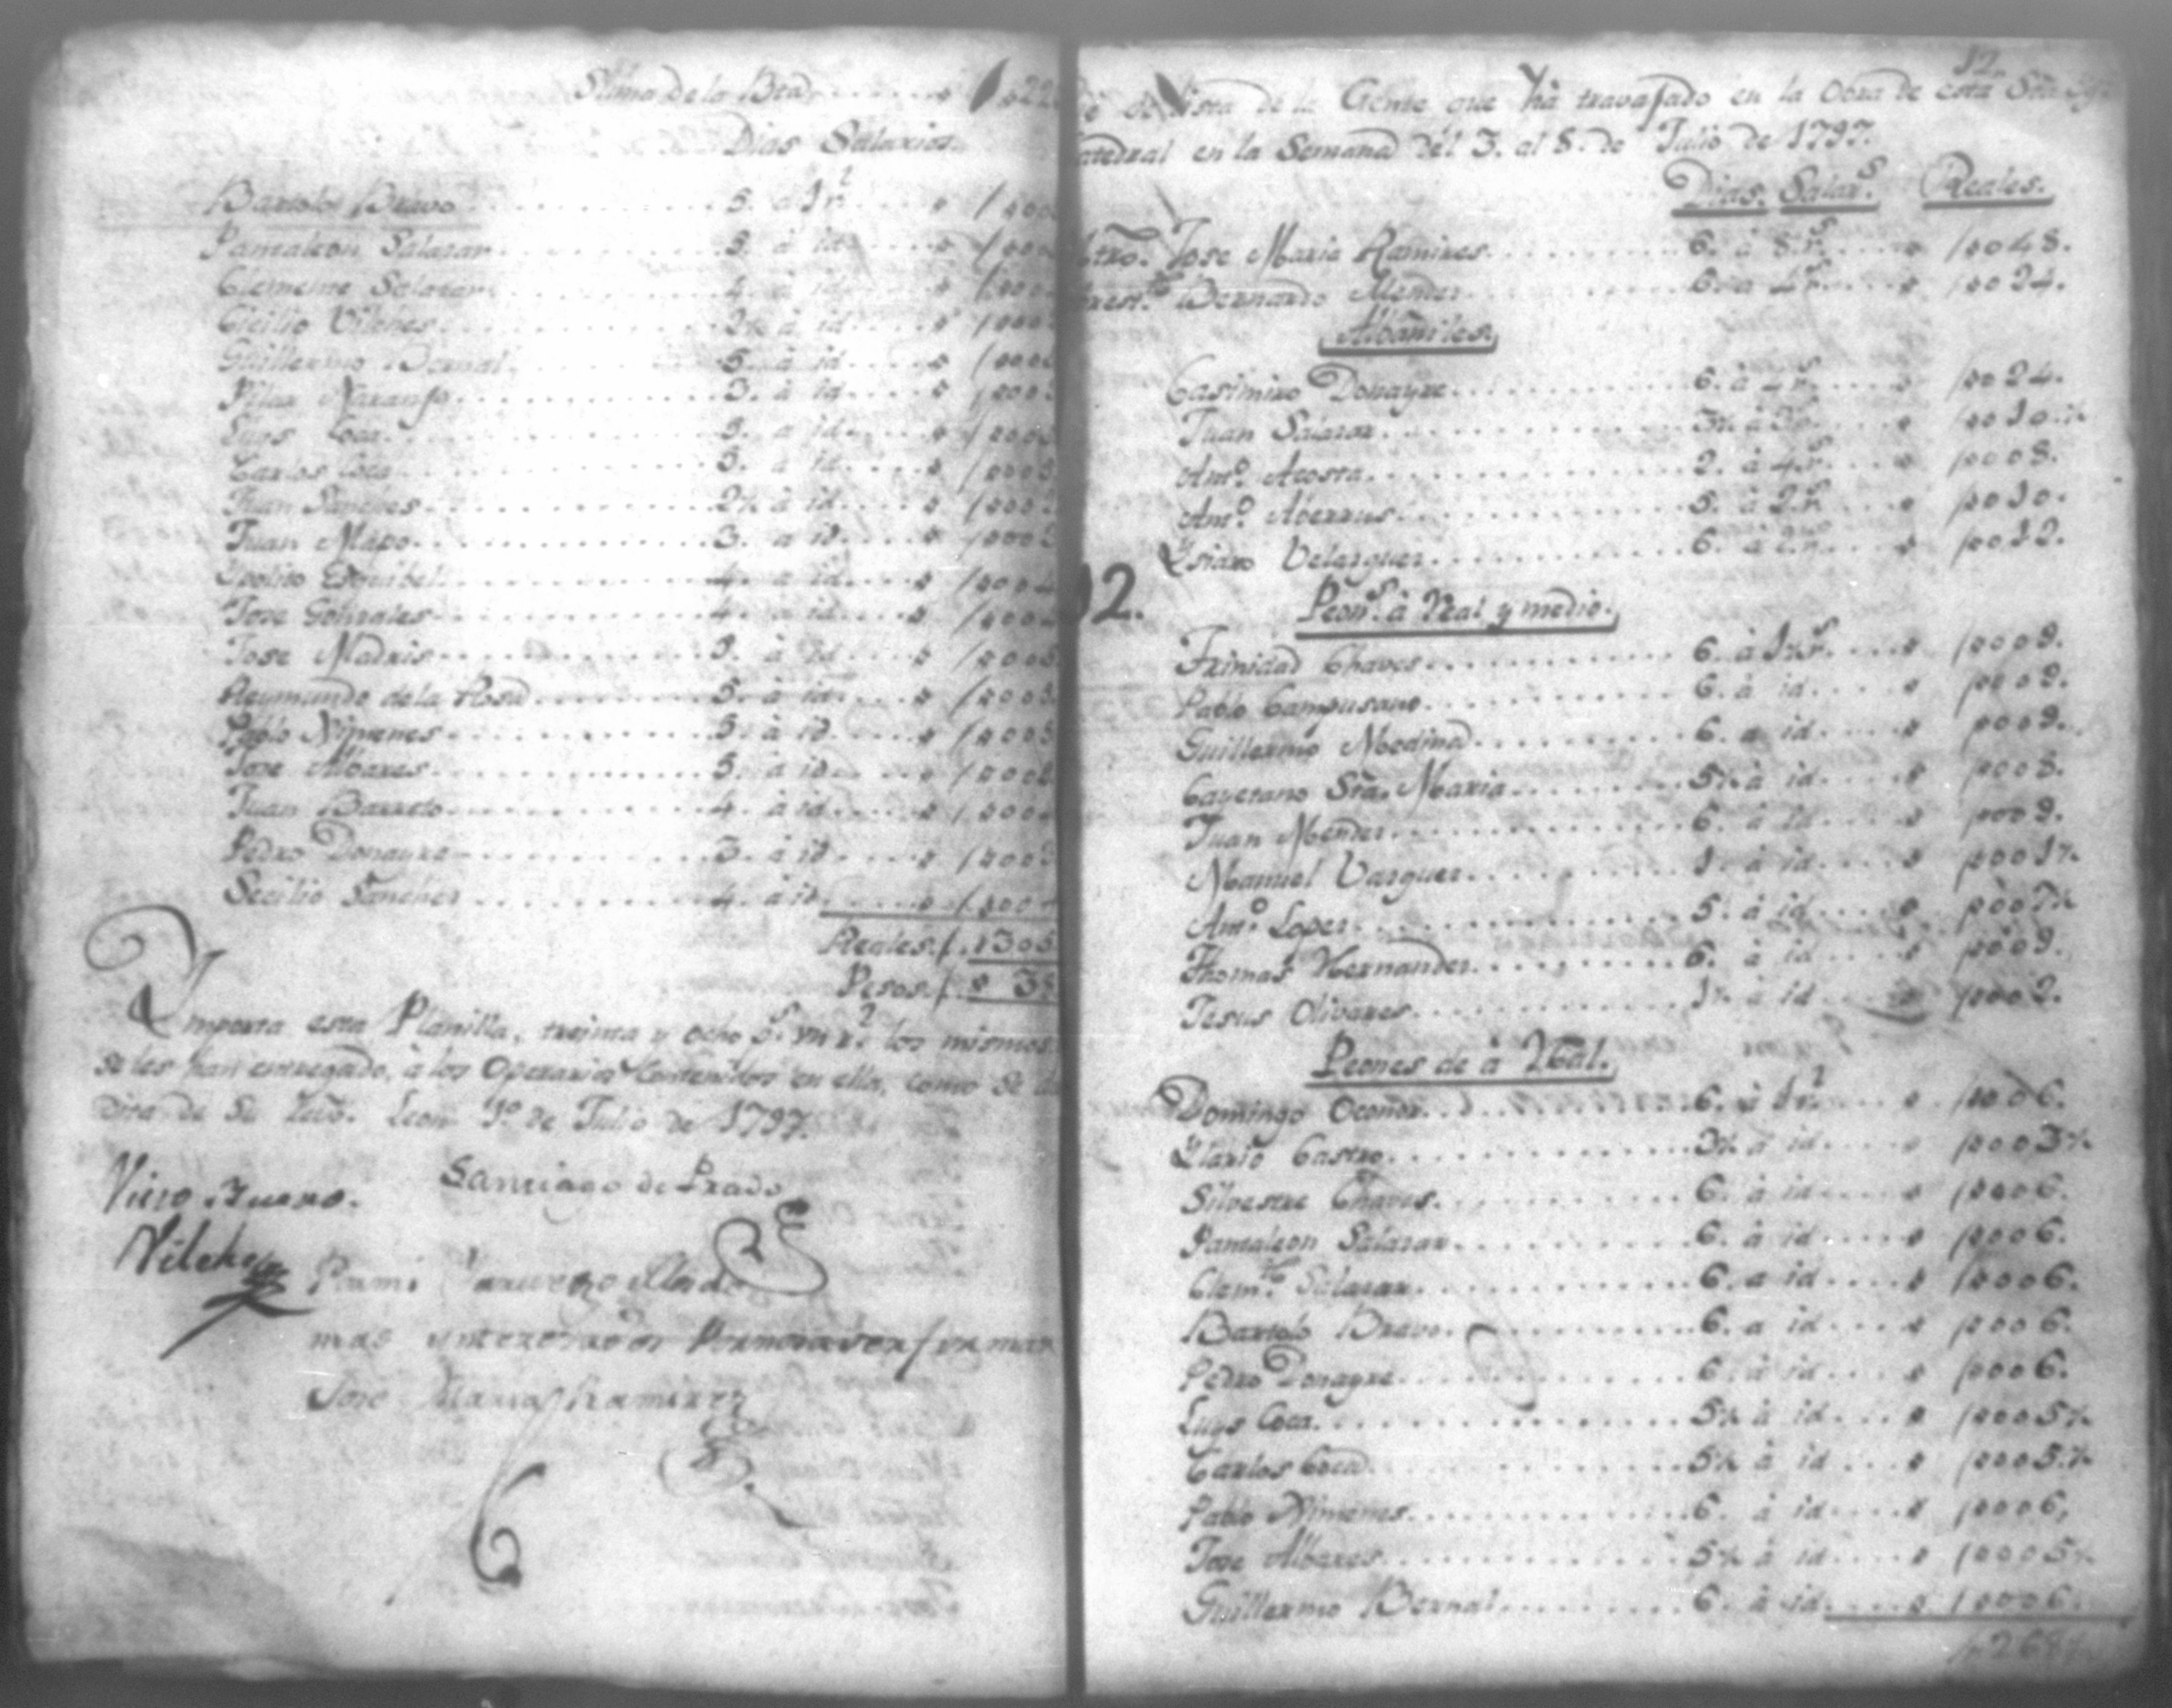 Suma de la Bta. . . . . . . . 1 022
Dias Salarios.
Bartolo Bravo . . . . 5. a 1 r.l
Pantaleon Salazar . . . . 5. à id . . . .
Clemente Salazar . . . . 4. à id . . . .
Cicilio Vilches . . . . 2½ à id . . . .
Guillermo Bernal . . . . 5. à id . . . .
Pilar Naranjo . . . . 3. à id . . . .
Luys Coca . . . . 5. a id . . . .
Carlos Coca . . . . 5. a id . . . .
Juan Sanches . . . . 2½ à id . . . .
Juan Mapo . . . . 3. a id . . . .
Ipolito Esquibel . . . . 4. a id . . . .
Jose Gonzales . . . . 4. a id . . . .
Jose Madris . . . . 3. à id . . . .
Raymundo de la Rosa . . . . 5. à id . . . .
Pablo Ximenes . . . . 5. à id . . . .
Jose Albares . . . . 5. à id . . . .
Juan Barreto . . . . 4. à id . . . .
Pedro Donayre . . . . 3. à id . . . .
Secilio Sanches . . . . 4. à id . . . .
Reales./. 305
Pesos./. 38
Ymporta esta Planilla, treinta y ocho p.s un r.l los mismos
se les han entregado, à los Operarios Contenidos en ella, como se
dita de su Reivo. Leon 1º de Julio de 1797.
Visto Bueno. Santiago de Prado
Vilches
Jose Maria Ramirez
12
Lista de la Gente que ha travajado en la Obra de esta Sta. Ygl.
atedral en la Semana del 3. al 8. de Julio de 1797.
Dias. Salar.s Reales.
Mtro. Jose Maria Ramires . . . . 6. à 8 r.s . . . . 0048.
Bernardo Mendes . . . . 6. a 4 r.s . . . . 0024.
Albañiles.
Casimiro Donayre . . . . 6. à 4 r.s . . . . 0024.
Juan Salazar . . . . 3½ à 3 r.s . . . . 0010.½
Ant.º Acosta . . . . 2. à 4 r.s . . . . 0008.
Ant.º . . . . 5. à 2 r.s . . . . 0010.
Ysidro Velasquez . . . . 6. à 2 r.s . . . . 0012.
12.
Peon.s à Real y medio.
Trinidad Chaves . . . . 6. à 1½ r.s . . . . 0009.
Pablo Campusano . . . . 6. à id . . . . 0009.
Guillermo Medina . . . . 6. a id . . . . 0009.
Cayetano Sta. Maria . . . . 5½ à id . . . . 0008.
Juan Mendes . . . . 6. à id . . . . 0009.
Manuel Vasquez . . . . 1. à id . . . . 0001½
Ant.º Lopez . . . . 5. à id . . . . 0007½
Thomas Hernandez . . . . 6. à id . . . . 0009.
Jesus Olivares . . . . 1½ à id . . . . 0002.
Peones de à Real.
Domingo Oconor . . . . 6. à 1 r.l . . . . 0006.
Ylario Castro . . . . 3½ à id . . . . 0003½
Silvestre Chaves . . . . 6. à id . . . . 0006.
Pantaleon Salazar . . . . 6. à id . . . . 0006.
Clem.te Salazar . . . . 6. a id . . . . 0006.
Bartolo Bravo . . . . 6. a id . . . . 0006.
Pedro Donayre . . . . 6. à id . . . . 0006.
Luys Coca . . . . 5½ à id . . . . 0005½
Carlos Coca . . . . 5½ à id . . . . 0005.½
Pablo Ximenes . . . . 6. à id . . . . 0006,
Jose Albares . . . . 5½ à id . . . . 0005½
Guillermo Bernal . . . . 6. à id . . . . 0006.